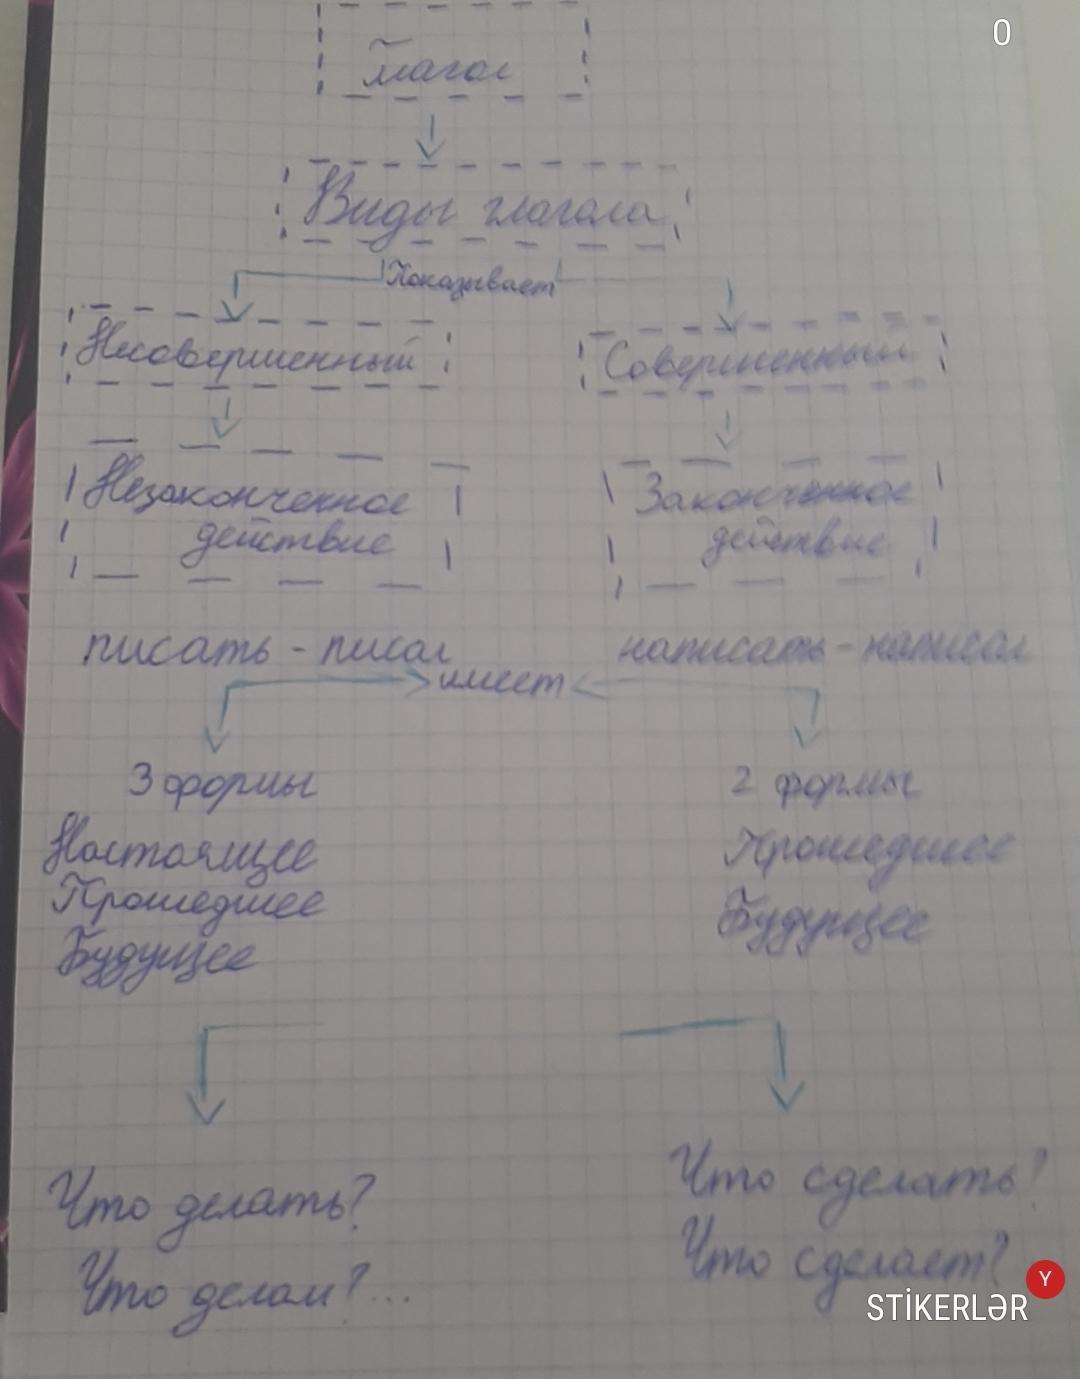 0
Глагол
Виды глагола
Показывает
Несовершенный
Совершенный
Незаконченное
действие
Законченное
действие
писать - писал
написать - написал
имеет
3 формы
Настоящее
Прошедшее
Будущее
2 формы
Прошедшее
Будущее
Что делать?
Что делал?...
Что сделать?
Что сделает?
Y
STİKERLƏR